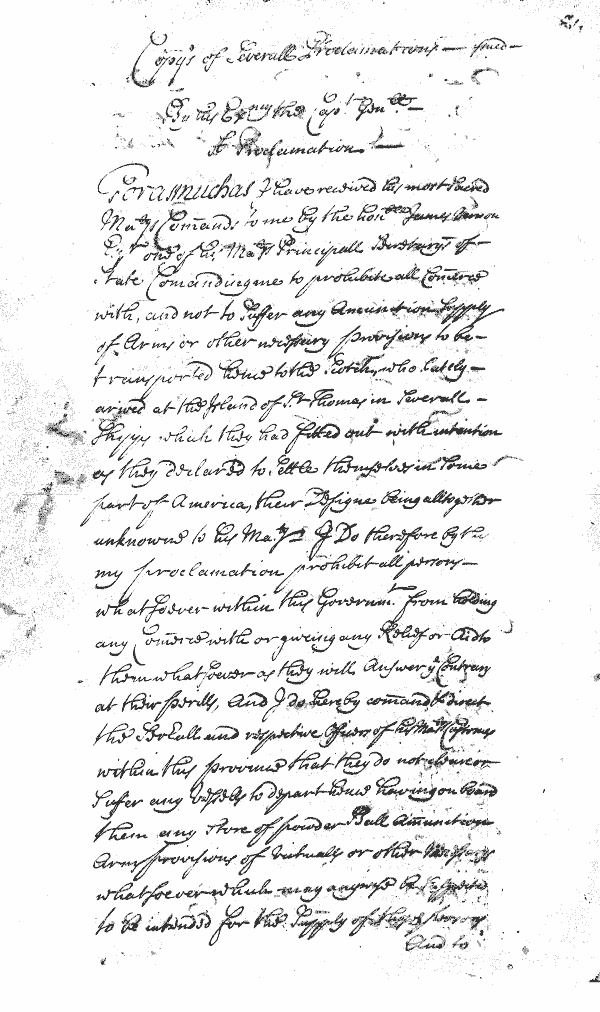 Copys of Severall Proclamations
By his Ex:ncy the Cap:t Gen:ll
A Proclamation
Forasmuchas I have received his most sacred
Ma:tys Comands to me by the hon:ble James Vernon
Esq:r one of his Ma:tys Principall Secretarys of
State Comandingme to prohibite all Comerce
with, and not to Suffer any Amunition Supply
of Arms or other necessary provisions to be
transported hence to the Scotch, who Lately
arived at the Island of S:t Thomas in Severall
Shipps which they had fitted out with intention
as they declared to Settle themselves in some
part of America, their Designe being alltogether
unknowne to his Ma:ty I Do therefore by
my proclamation prohibit all persons
whatsoever within this Governm:t from holding
any Comerce with or giveing any Relief or Aid to
them whatsoever as they will Answer y:e Contrary
at their perill, And I do hereby comand & direct
the Severall and respective Officers of his Ma:tys Customes
within this province that they do not cleare or
Suffer any Vessells to depart hence having on board
them any store of powder Ball Amunition
Arms provisions of Victualls or other
whatsoever which may anywise be
to be intended for the Supply of these persons
And to